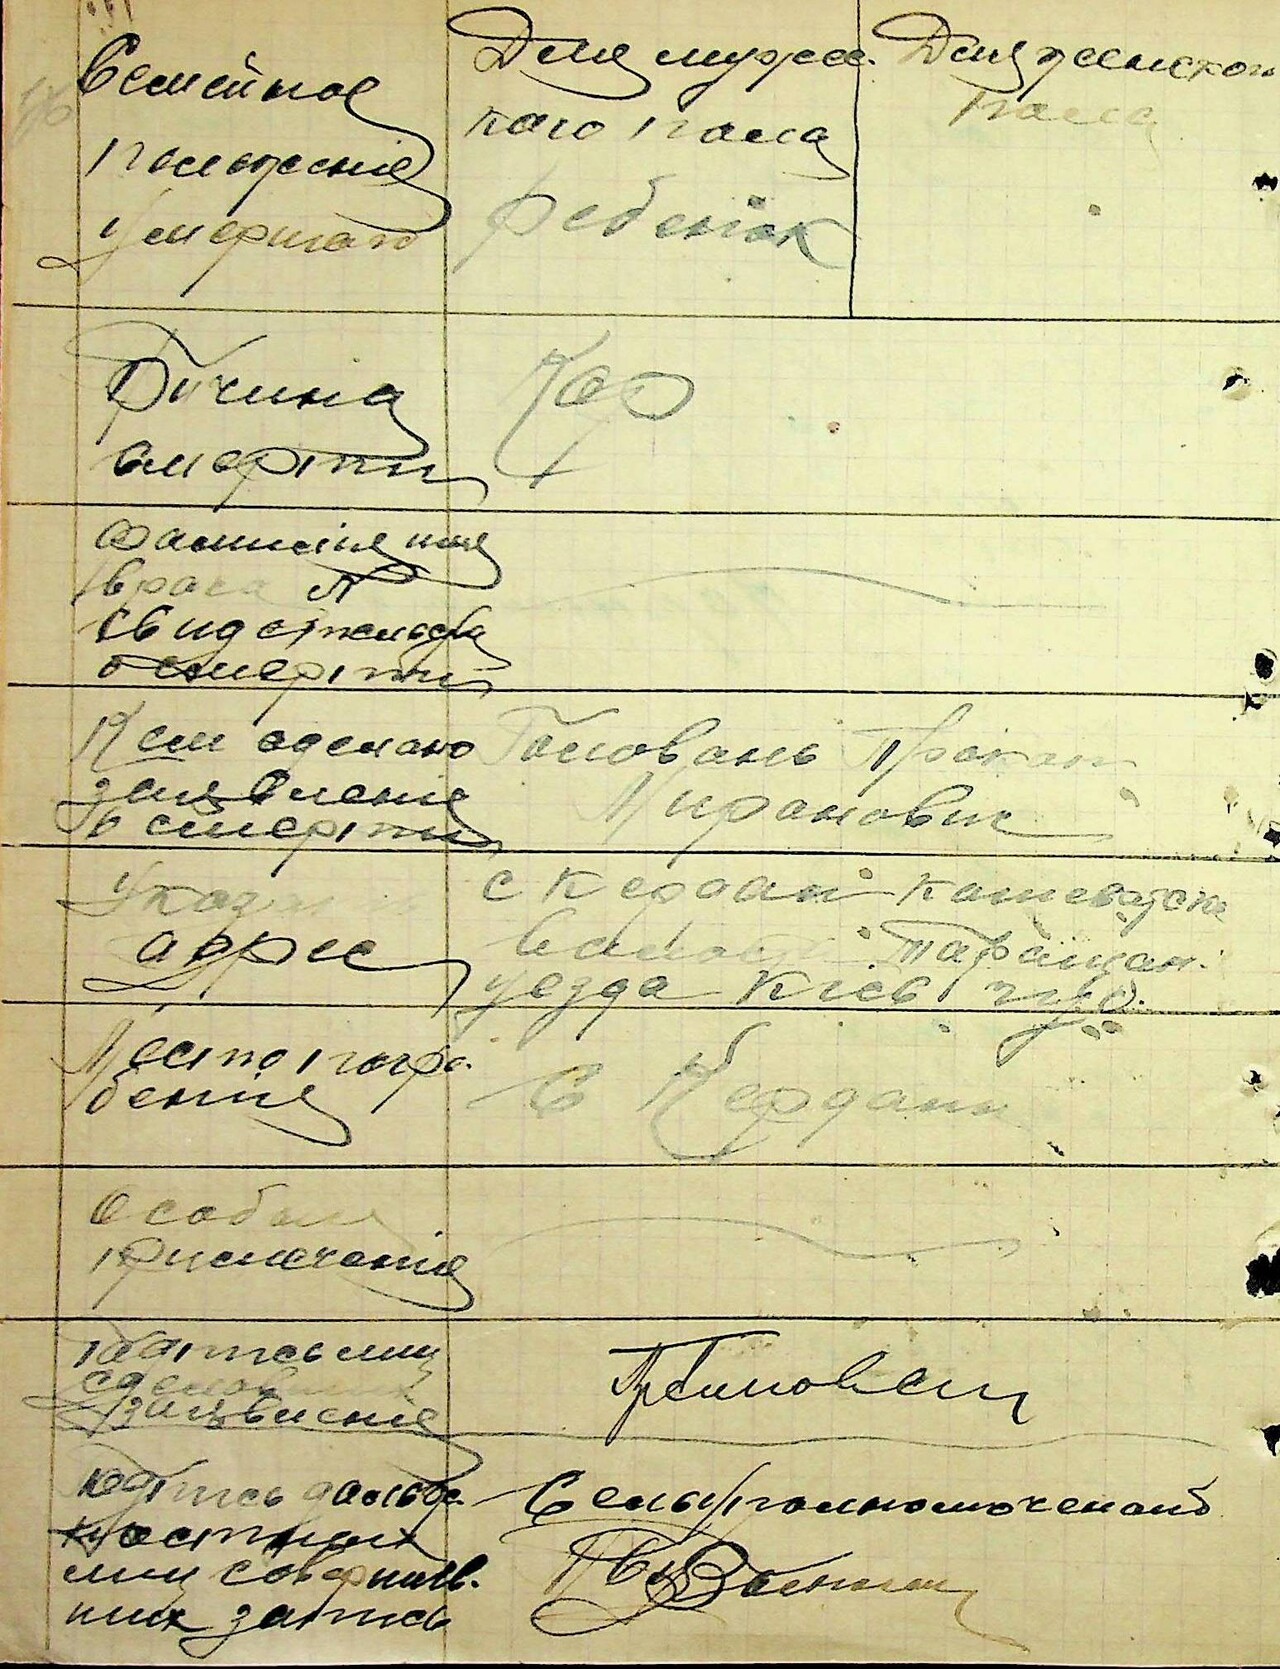 Семейное
положение
умершаго
Для мужс-
каго пола
Для женского
пола
ребенок
Причина
смерти
Кор
Фамилия имя
врача №
свидетельства
о смерти
Кем сделано
заявление
о смерти
Головань Прокоп
Миронович
Указать
адрес
с Кердан Кошеватск
Волост Таращан.
уезда Киев губ.
Место погре-
бения
С Кердани
Особыя
примечания
Подпись лиц
сделавших
заявление
Подпись должно-
ностных
лиц совершив-
ших запись
Сельуполномоченный